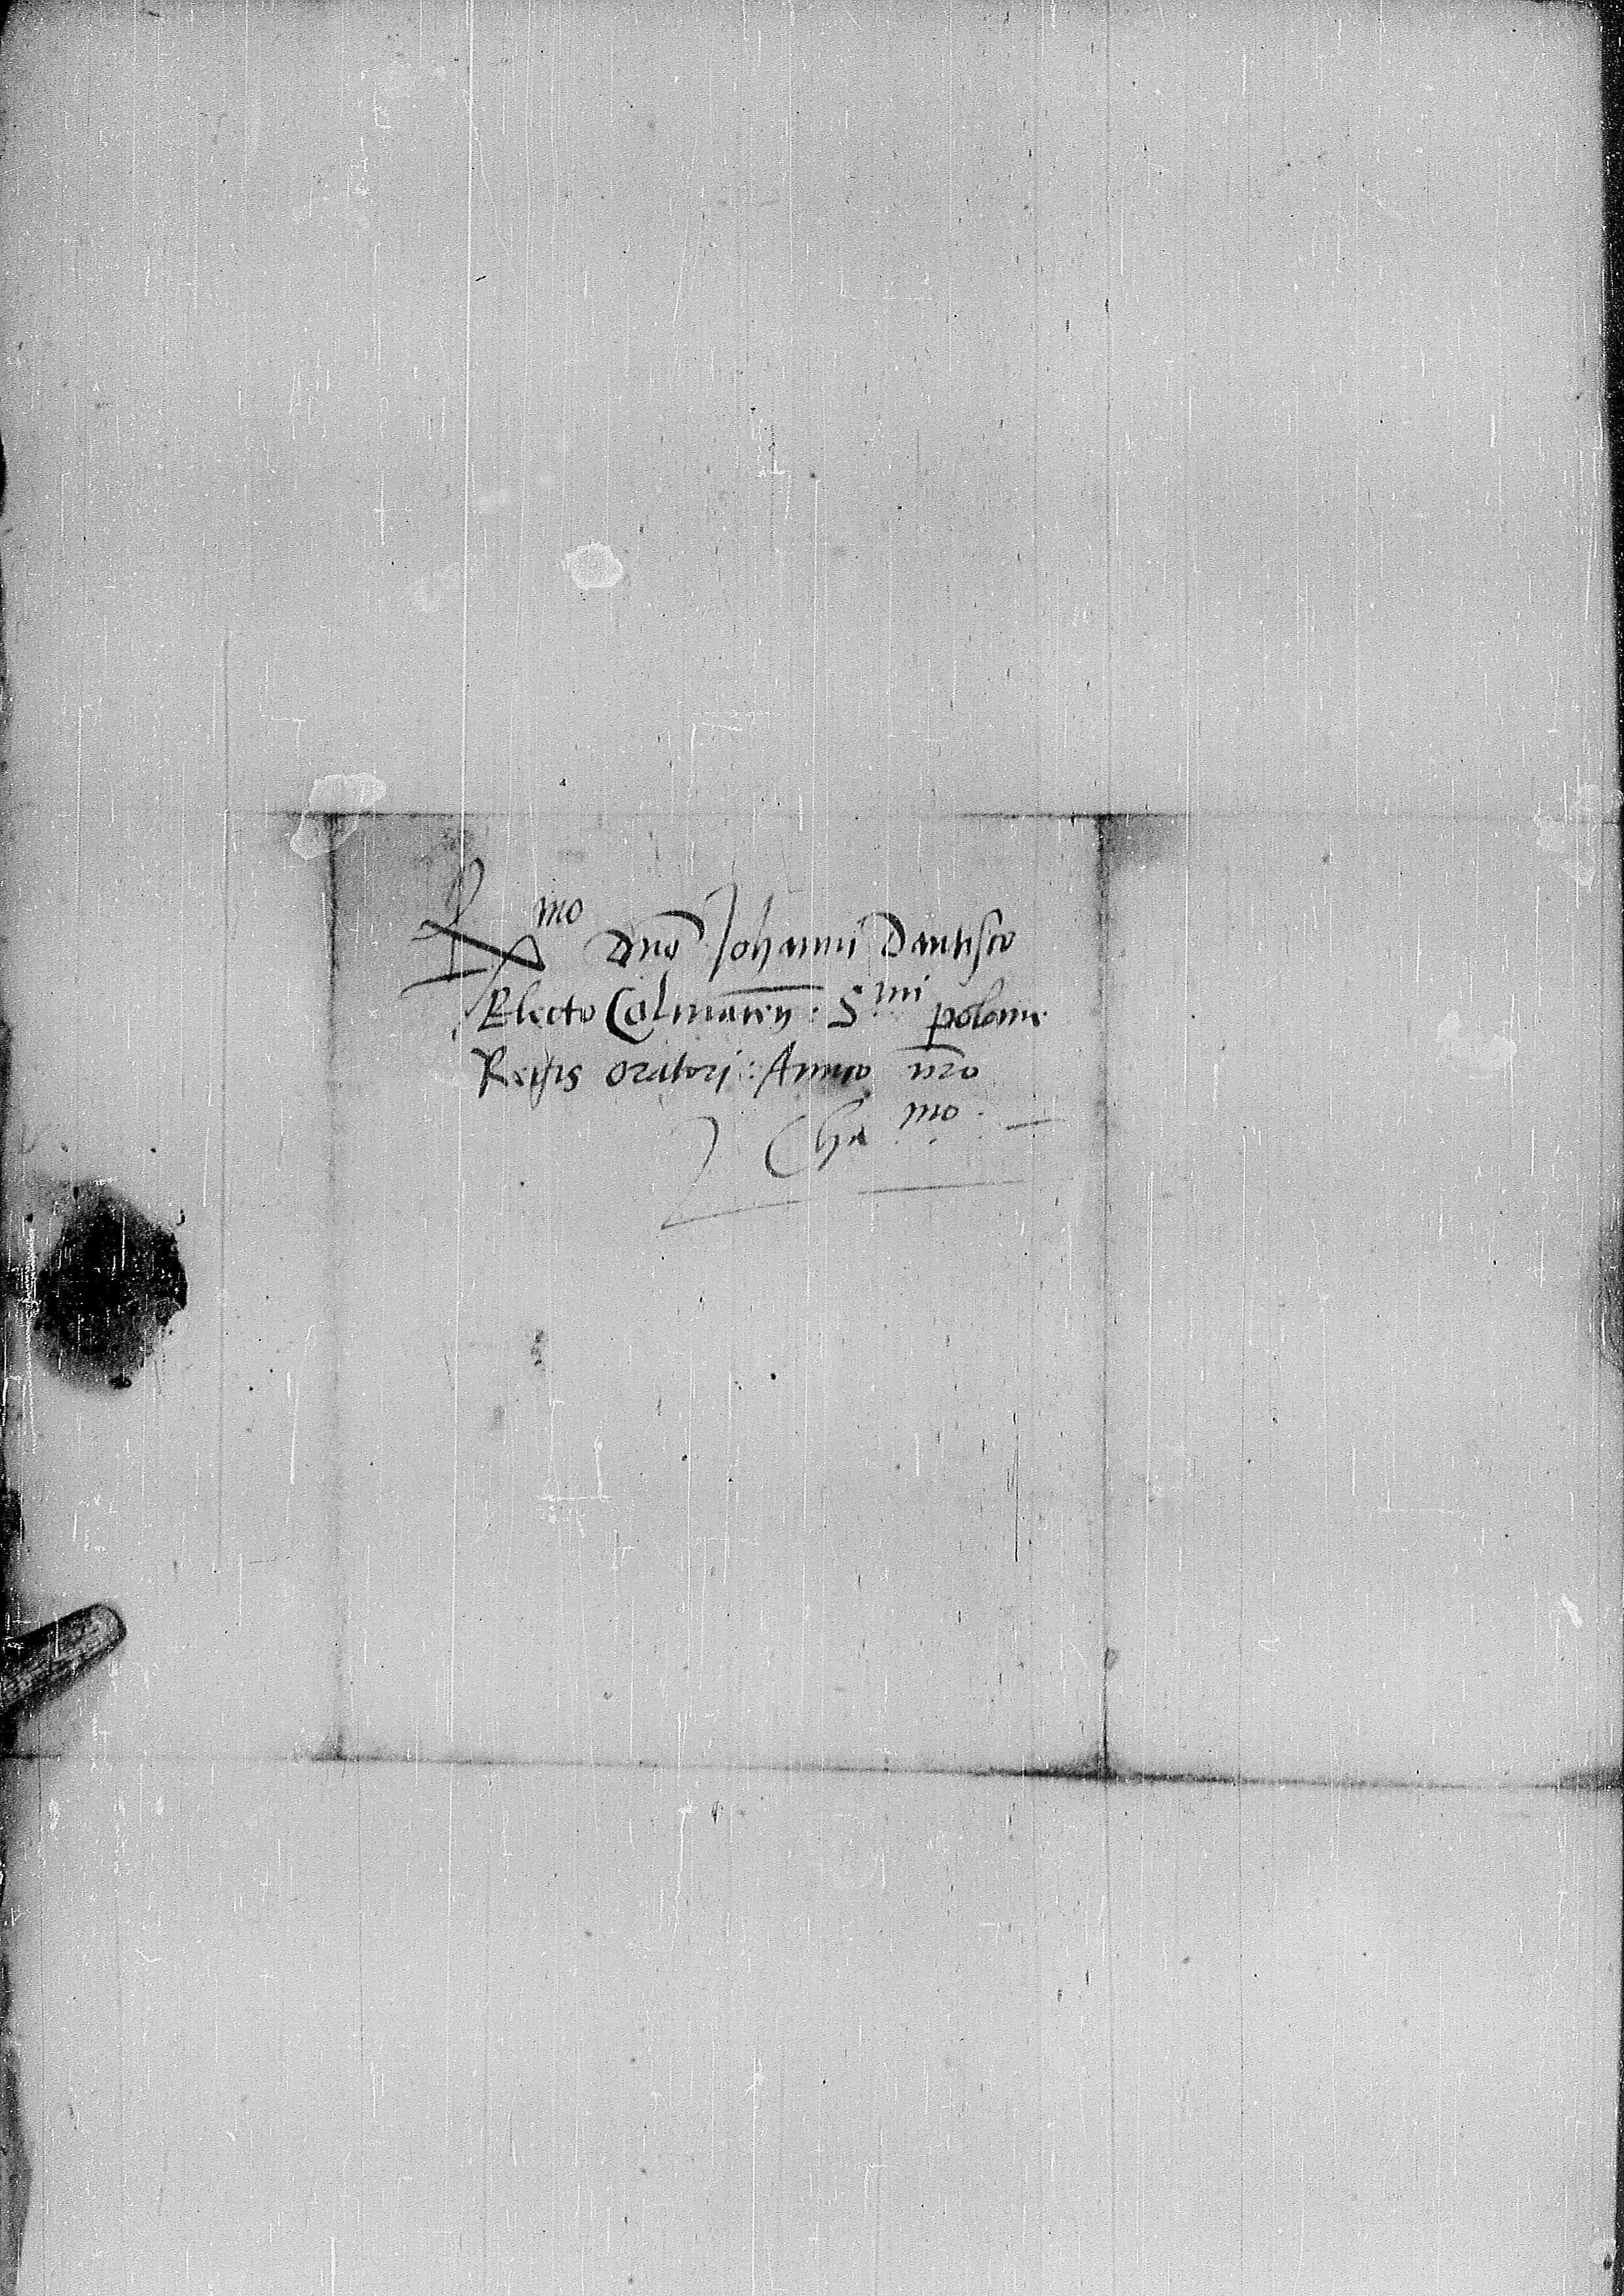 R mo Dno Johanni Dantisco
Electo Colmaren: S. mi polonie
Regis oratori: Amico nro
Cha mo.